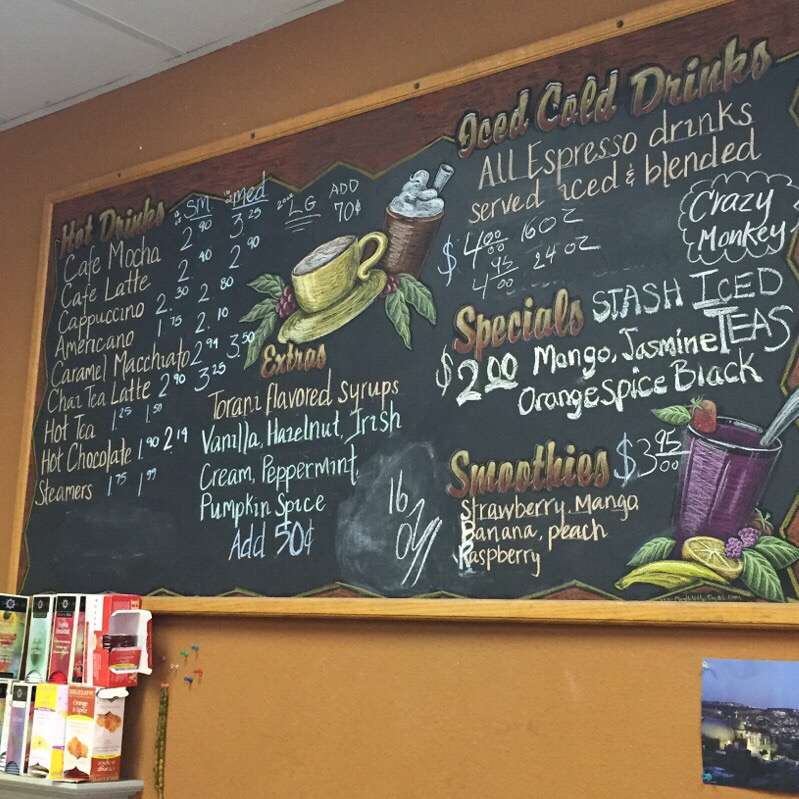 Hot Drinks
SM med LG ADD 70¢
Cafe Mocha 2.90 3.25
Cafe Latte 2.40 2.90
Cappuccino 2.30 2.80
Americano 1.75 2.10
Caramel Macchiato 2.94 3.50
Chai Tea Latte 2.90 3.25
Hot Tea 1.25 1.50
Hot Chocolate 1.90 2.19
Steamers 1.75 1.99
Extras
Torani flavored syrups
Vanilla, Hazelnut, Irish
Cream, Peppermint,
Pumpkin Spice
Add 50¢
16 oz
Iced Cold Drinks
All Espresso drinks
served iced & blended
$4.00 16 oz
4.95 24 oz
Crazy
Monkey
Specials STASH ICED
TEAS
$2.00 Mango, Jasmine
Orange Spice Black
Smoothies $3.95
Strawberry, Manga
Banana, peach
Raspberry
Orange
& Spice